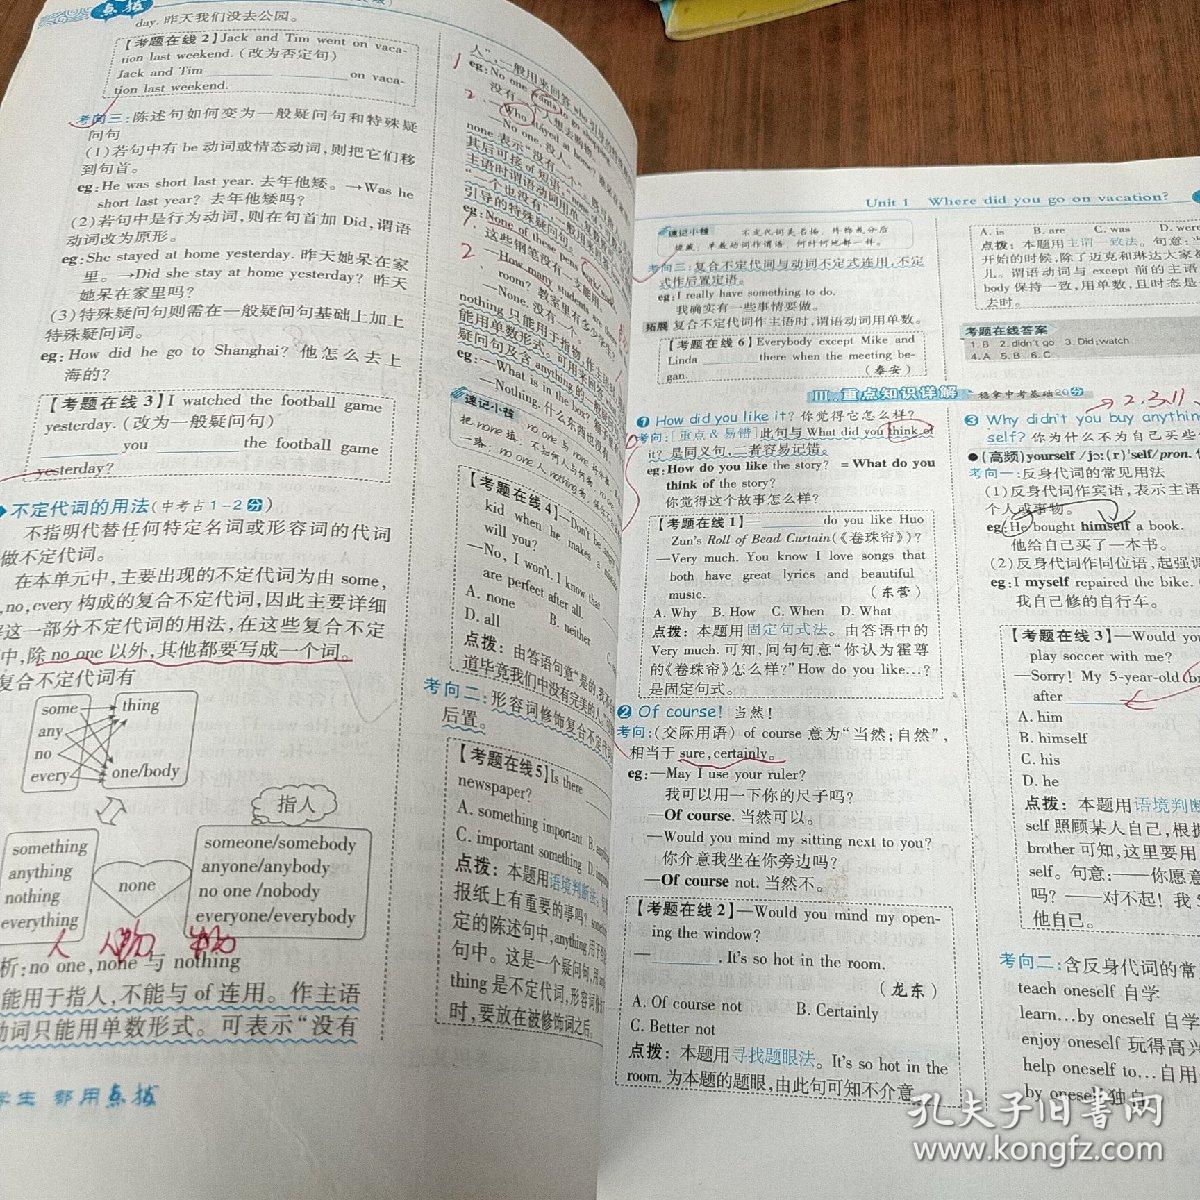 点拨
day. 昨天我们没去公园。
【考题在线2】Jack and Tim went on vaca-
tion last weekend. (改为否定句)
Jack and Tim ______ on vaca-
tion last weekend.
考向三:陈述句如何变为一般疑问句和特殊疑
问句
(1)若句中有 be 动词或情态动词,则把它们移
到句首。
eg:He was short last year. 去年他矮。→Was he
short last year? 去年他矮吗?
(2)若句中是行为动词,则在句首加 Did,谓语
动词改为原形。
eg:She stayed at home yesterday. 昨天她呆在家
里。→Did she stay at home yesterday? 昨天
她呆在家里吗?
(3)特殊疑问句则需在一般疑问句基础上加上
特殊疑问词。
eg:How did he go to Shanghai? 他怎么去上
海的?
【考题在线3】I watched the football game
yesterday. (改为一般疑问句)
______ you ______ the football game
yesterday?
不定代词的用法(中考占1-2分)
不指明代替任何特定名词或形容词的代词
做不定代词。
在本单元中,主要出现的不定代词为由 some,
,no,every 构成的复合不定代词,因此主要详细
这一部分不定代词的用法,在这些复合不定
中,除 no one 以外,其他都要写成一个词。
复合不定代词有
some
thing
any
no
every
one/body
指人
something
anything
nothing
everything
none
someone/somebody
anyone/anybody
no one /nobody
everyone/everybody
人 人物 物
析:no one,none 与 nothing
能用于指人,不能与 of 连用。作主语
动词只能用单数形式。可表示“没有
学生 都用点拨
人”,一般用来回答 who 引导的
eg:No one wants to go shopping.
没有一个人想去购物。
—Who stayed at home?
—No one. 没人。
none 表示“没有一个”
其后可接 of 短语,
主语时谓语动词用单
“一个也没有”,一般用来
引导的特殊疑问句。
eg:None of these pens
这些钢笔没有一支能用
—How many students are
room? 教室里有多少学生?
—None. 没有一个。
nothing 只能用于指物,作主语
能用单数形式。可用来回答
疑问句及含 anything 的一般疑问
eg:—What is in the box?
—Nothing. 什么东西也没有。
速记小栈
【考题在线4】—Don't be
kid when he makes a
will you?
—No, I won't. I know that
are perfect after all.
A. none
B. neither
D. all
点拨:由答语句意“是的,我不
道毕竟我们中没有完美的人
考向二:形容词修饰复合不定代词
后置。
【考题在线5】Is there
newspaper?
A. something important B.
C. important something D.
点拨:本题用语境判断法。
报纸上有重要的事吗?
定的陈述句中,anything 用于
句中。这是一个疑问句,用 any-
thing 是不定代词,形容词修饰
时,要放在被修饰词之后。
Unit 1 Where did you go on vacation?
速记小栈
不定代词美名扬,形饰我分后
边藏,单数动词作谓语,何时何地都一样。
考向三:复合不定代词与动词不定式连用,不定
式作后置定语。
eg:I really have something to do.
我确实有一些事情要做。
拓展 复合不定代词作主语时,谓语动词用单数。
【考题在线6】Everybody except Mike and
Linda ______ there when the meeting be-
gan. (泰安)
A. is B. are C. was D. were
点拨:本题用主谓一致法。句意:
开始的时候,除了迈克和琳达大家都
儿。谓语动词与 except 前的主语
body 保持一致,用单数,且时态是
去时。
考题在线答案
1. B 2. didn't go 3. Did;watch
4. A 5. B 6. C
Ⅲ.重点知识详解 稳拿中考基础20分
1 How did you like it? 你觉得它怎么样?
考向:[重点&易错]此句与 What did you think of
it? 是同义句,二者容易记错。
eg:How do you like the story? = What do you
think of the story?
你觉得这个故事怎么样?
【考题在线1】—______ do you like Huo
Zun's Roll of Bead Curtain(《卷珠帘》)?
—Very much. You know I love songs that
both have great lyrics and beautiful
music. (东营)
A. Why B. How C. When D. What
点拨:本题用固定句式法。由答语中的
Very much. 可知,问句句意“你认为霍尊
的《卷珠帘》怎么样?”How do you like...?
是固定句式。
2 Of course! 当然!
考向:(交际用语) of course 意为“当然;自然”,
相当于 sure,certainly。
eg:—May I use your ruler?
我可以用一下你的尺子吗?
—Of course. 当然可以。
—Would you mind my sitting next to you?
你介意我坐在你旁边吗?
—Of course not. 当然不。
【考题在线2】—Would you mind my open-
ing the window?
—______. It's so hot in the room.
(龙东)
A. Of course not B. Certainly
C. Better not
点拨:本题用寻找题眼法。It's so hot in the
room. 为本题的题眼,由此句可知不介意
2.3.11
3 Why didn't you buy anything
self? 你为什么不为自己买些
●(高频) yourself /jɔː(r)'self/pron.
考向一:反身代词的常见用法
(1)反身代词作宾语,表示主语
个人或事物。
eg:He bought himself a book.
他给自己买了一本书。
(2)反身代词作同位语,起强调
eg:I myself repaired the bike.
我自己修的自行车。
【考题在线3】—Would you
play soccer with me?
—Sorry! My 5-year-old
after ______
A. him
B. himself
C. his
D. he
点拨:本题用语境判断
self 照顾某人自己,根据
brother 可知,这里要用
self。句意:——你愿意
吗? ——对不起!我5
他自己。
考向二:含反身代词的常
teach oneself 自学
learn...by oneself 自学
enjoy oneself 玩得高兴
help oneself to... 自用
by oneself 独自
孔夫子旧书网
www.kongfz.com